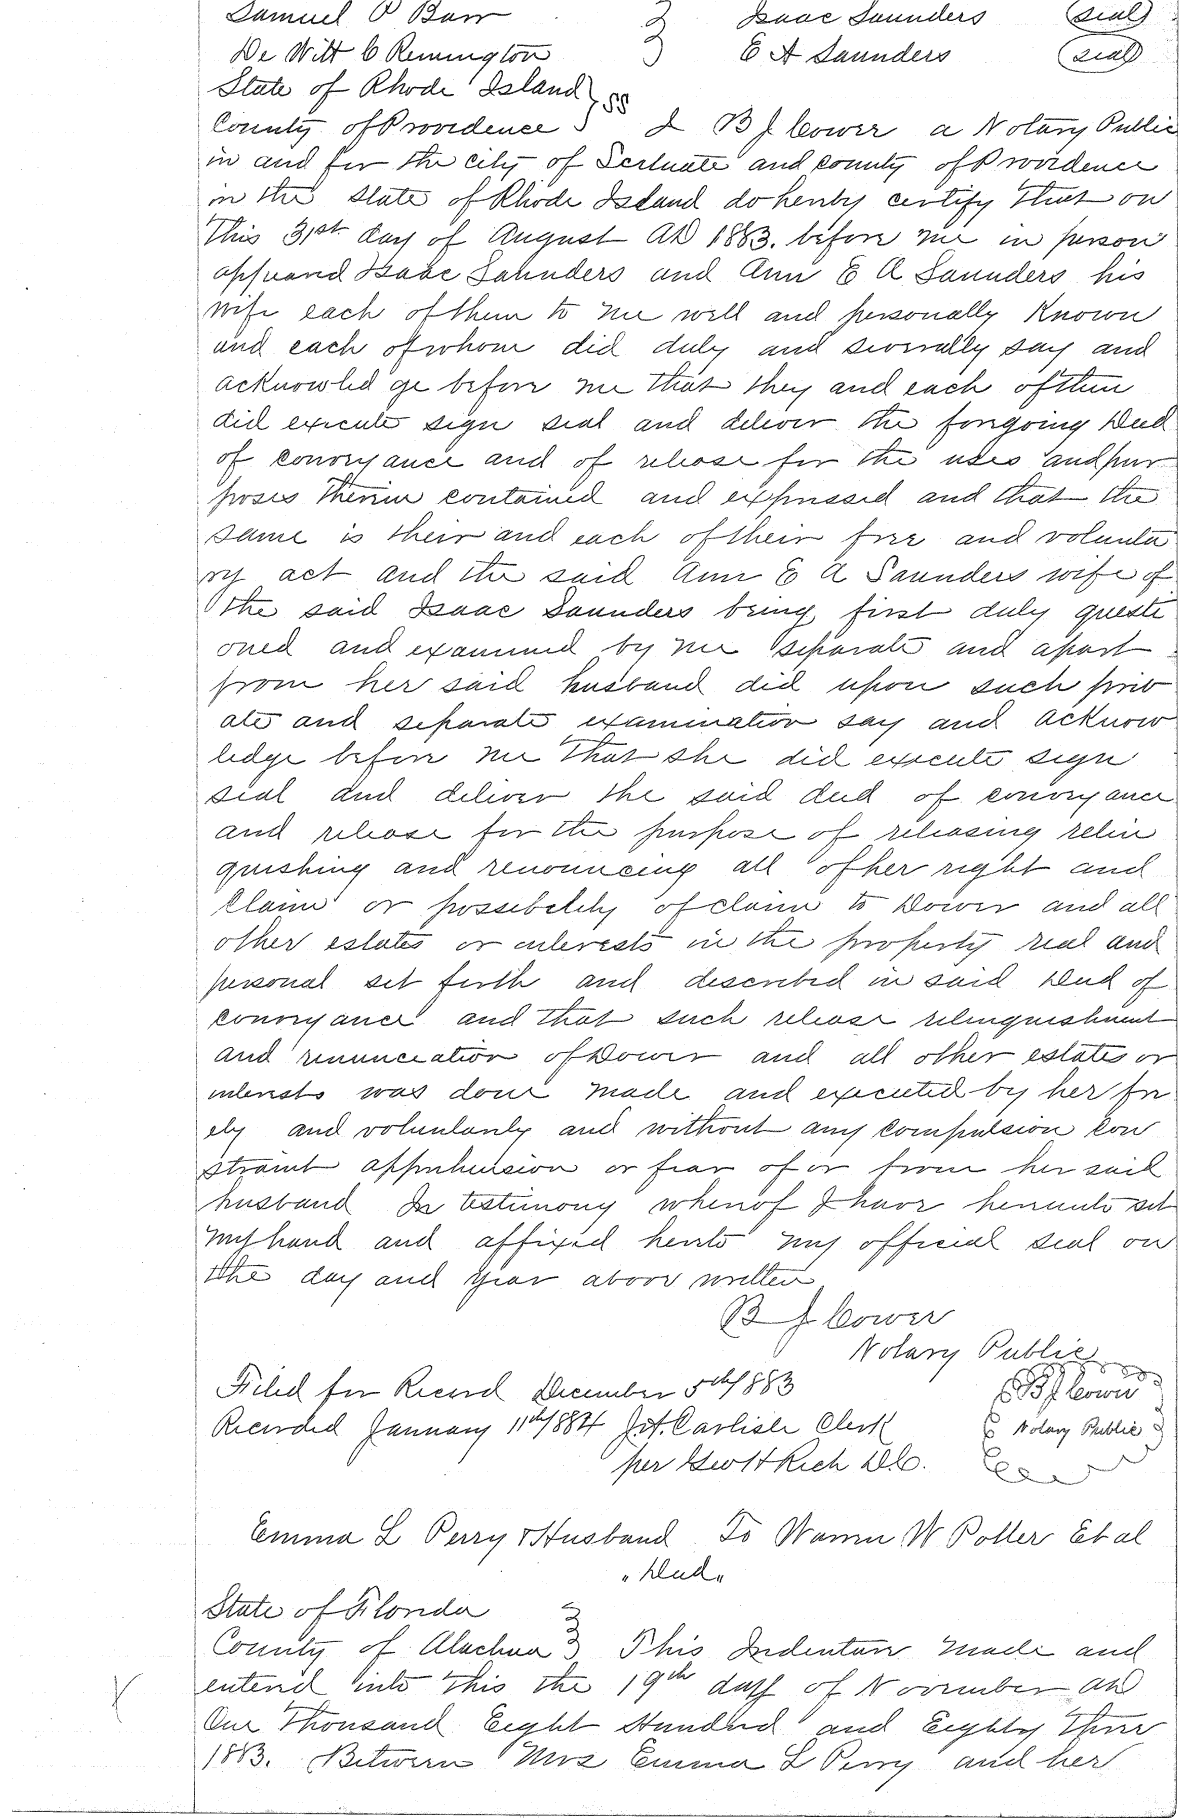 Samuel P Barr } Isaac Saunders (seal)
De Witt C Remington } E A Saunders (seal)
State of Rhode Island } SS
County of Providence } I B J Cower a Notary Public
in and for the city of Scituate and county of Providence
in the State of Rhode Island do hereby certify that on
this 31st day of August AD 1883. before me in person
appeared Isaac Saunders and Ann E A Saunders his
wife each of them to me well and personally Known
and each of whom did duly and severally say and
acknowled ge before me that they and each of them
did execute sign seal and deliver the foregoing Deed
of conveyance and of release for the uses and pur
poses therein contained and expressed and that the
same is their and each of their free and volunta
ry act and the said Ann E A Saunders wife of
the said Isaac Saunders being first duly questi
oned and examined by me separate and apart
from her said husband did upon such priv
ate and separate examination say and acknow
ledge before me that she did execute sign
seal and deliver the said deed of conveyance
and release for the purpose of releasing relin
quishing and renouncing all of her right and
claim or possibility of claim to Dower and all
other estates or interests in the property real and
personal set forth and described in said Deed of
conveyance and that such release relinquishment
and renunciation of Dower and all other estates or
interests was done made and executed by her fre
ely and voluntarily and without any compulsion con
straint apprehension or fear of or from her said
husband In testimony whereof I have hereunto set
my hand and affixed hereto my official seal on
the day and year above written
B J Cower
Notary Public
Filed for Record December 5th 1883
B J Cower
Recorded January 11th 1884 J. A. Carlisle Clerk
Notary Public
per Geo H Rich D.C.
Emma L Perry & Husband To Warren W Potter Et al
"Deed"
State of Florida }
County of Alachua } This Indenture made and
entered into this the 19th day of November AD
One Thousand Eight Hundred and Eighty Three
1883. Between Mrs Emma L Perry and her